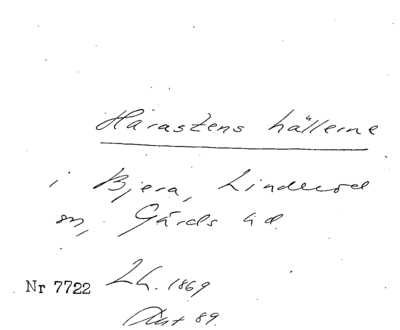 Härastens hällerne
i Bjera, Linderod
sn, Gärds hd.
Nr 7722 Lh. 1869
89.